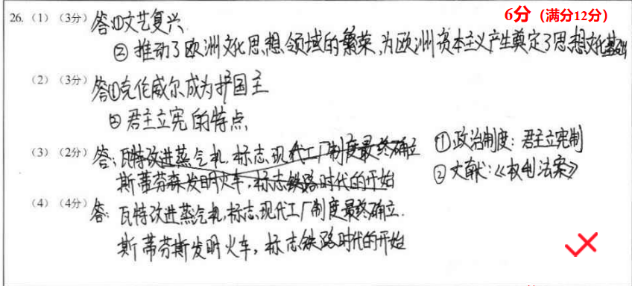 6分（满分12分）
26.（1）（3分）答：①文艺复兴
②推动了欧洲文化思想领域的繁荣，为欧洲资本主义产生奠定了思想文化基础
（2）（3分）答①克伦威尔成为护国主
②君主立宪的特点
（3）（2分）答：瓦特改进蒸气机，标志现代工厂制度最终确立 ①政治制度：君主立宪制
斯蒂芬森发明火车，标志铁路时代的开始 ②文献：《权利法案》
（4）（4分）答：瓦特改进蒸气机，标志现代工厂制度最终确立.
斯蒂芬斯发明火车，标志铁路时代的开始